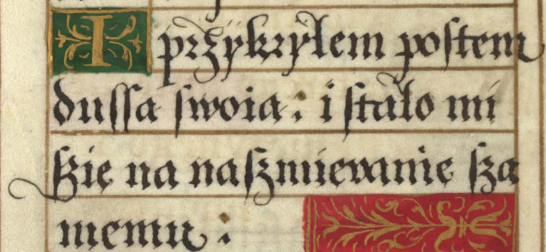 I przÿkrÿlem postem
dussa swoia: i stalo mi
szie na naszmiewanie sza
memu: